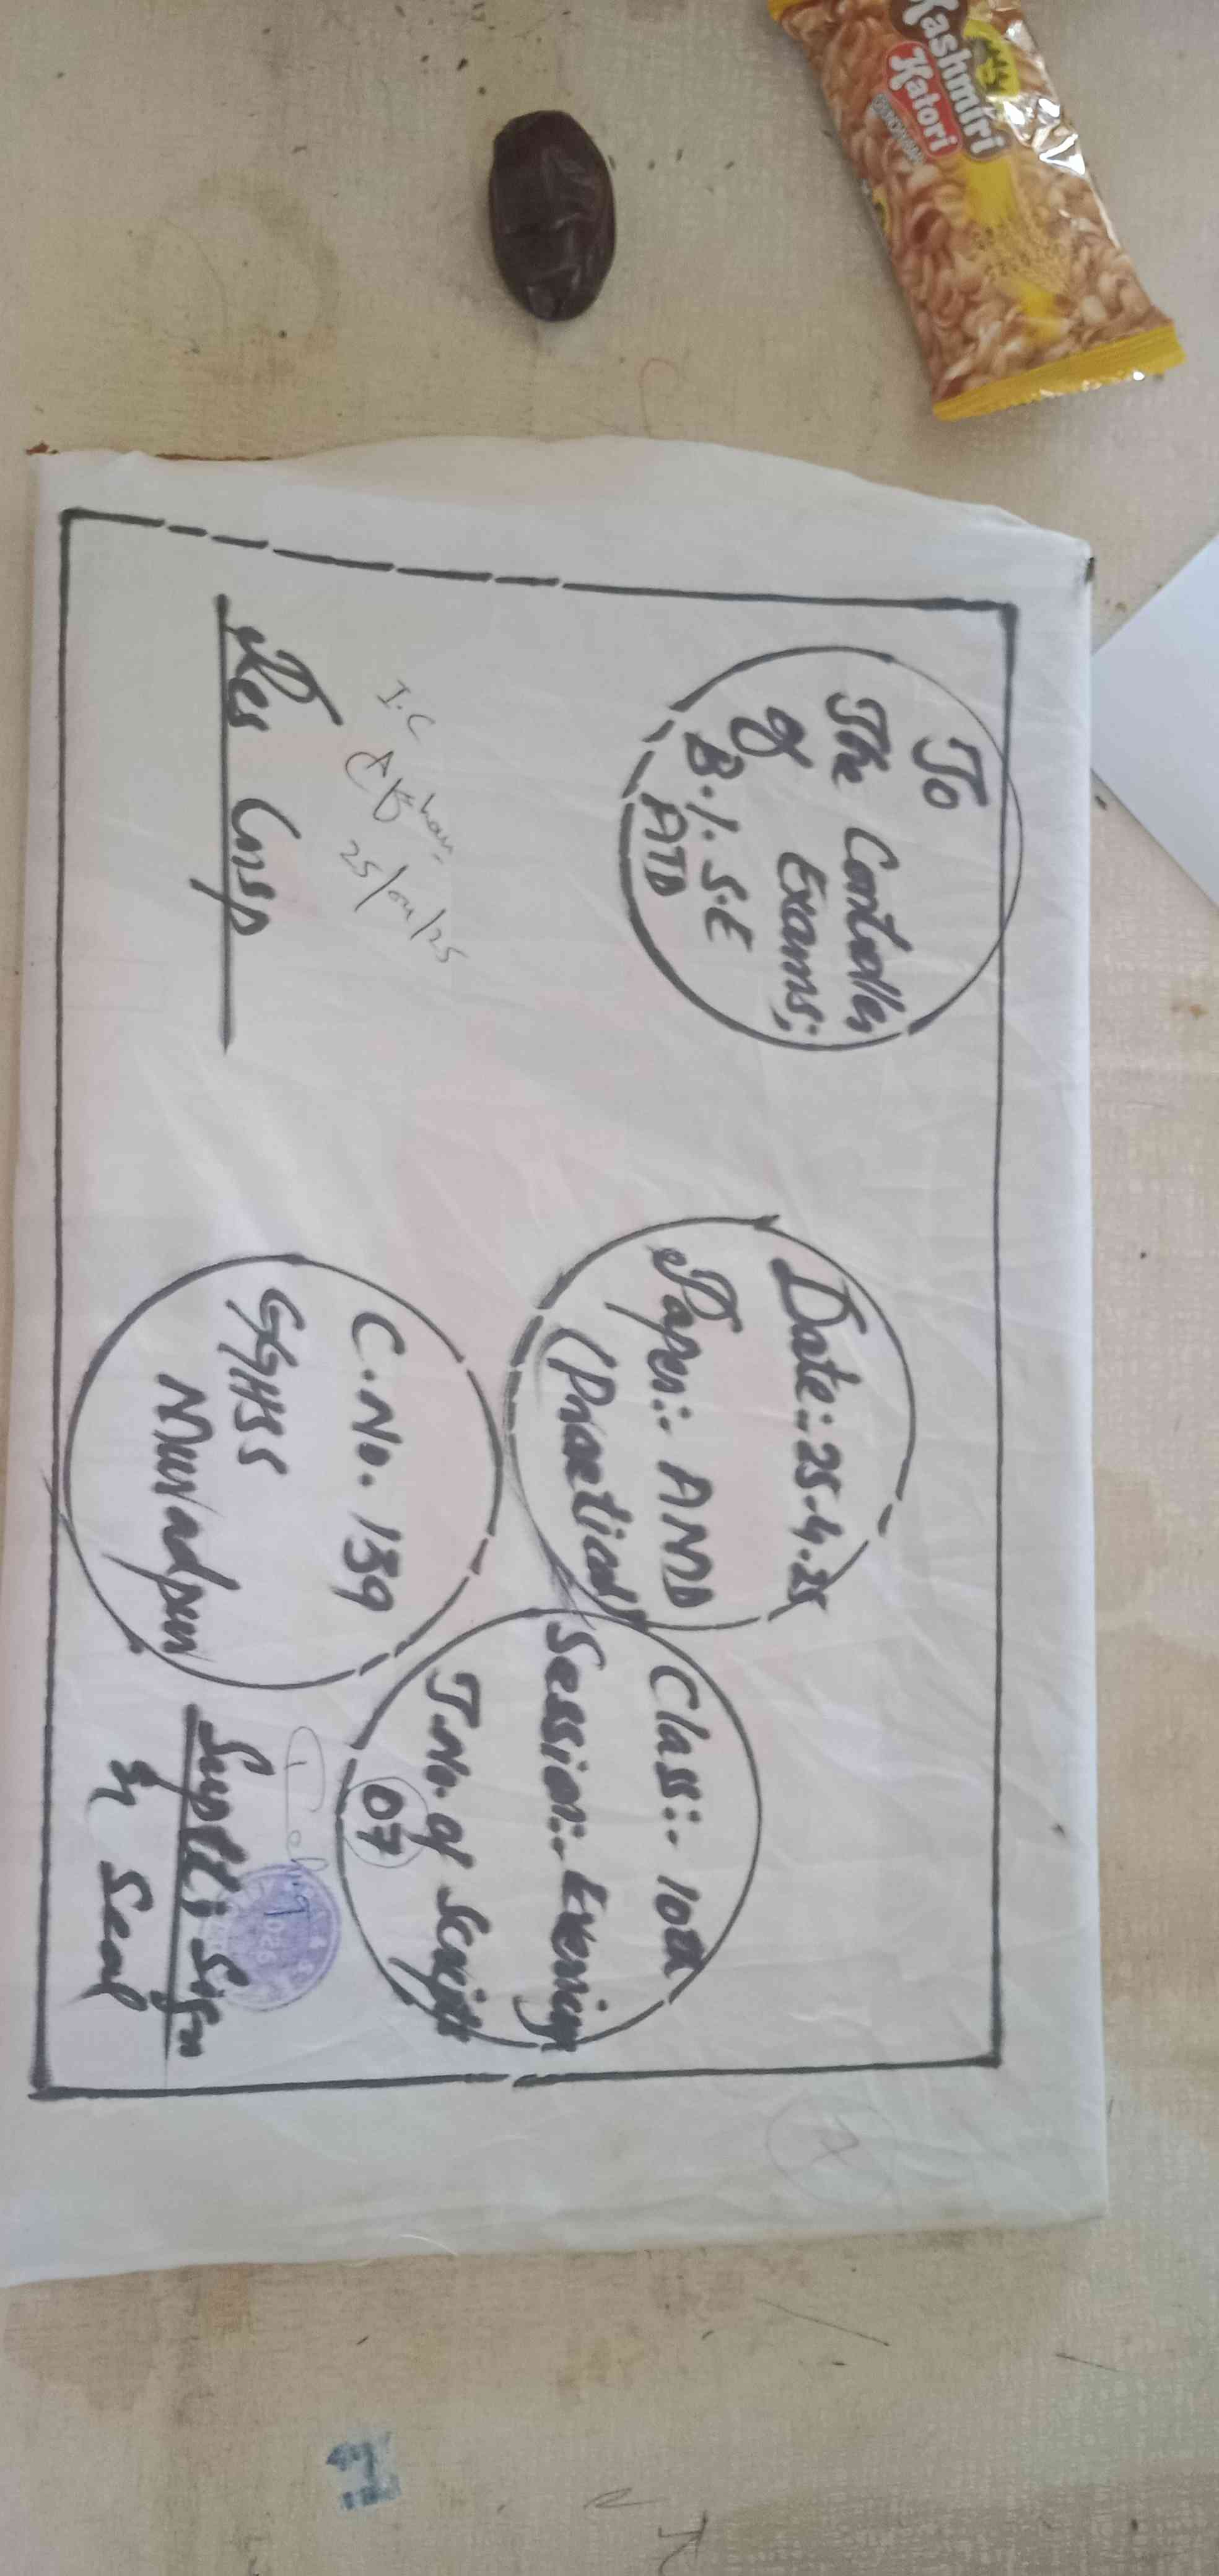 Kashmiri
Katori
To
The Controller
of Exams;
B.I.S.E
ATD
Date:- 25.4.25
Paper:- AMD
(Practical)
Class:- 10th
Session:- Evening
T.No. of Scripts
07
C.No. 139
GGHSS
Muradpur
I.C
25/04/25
Res Insp
Suptt; Sign
& Seal